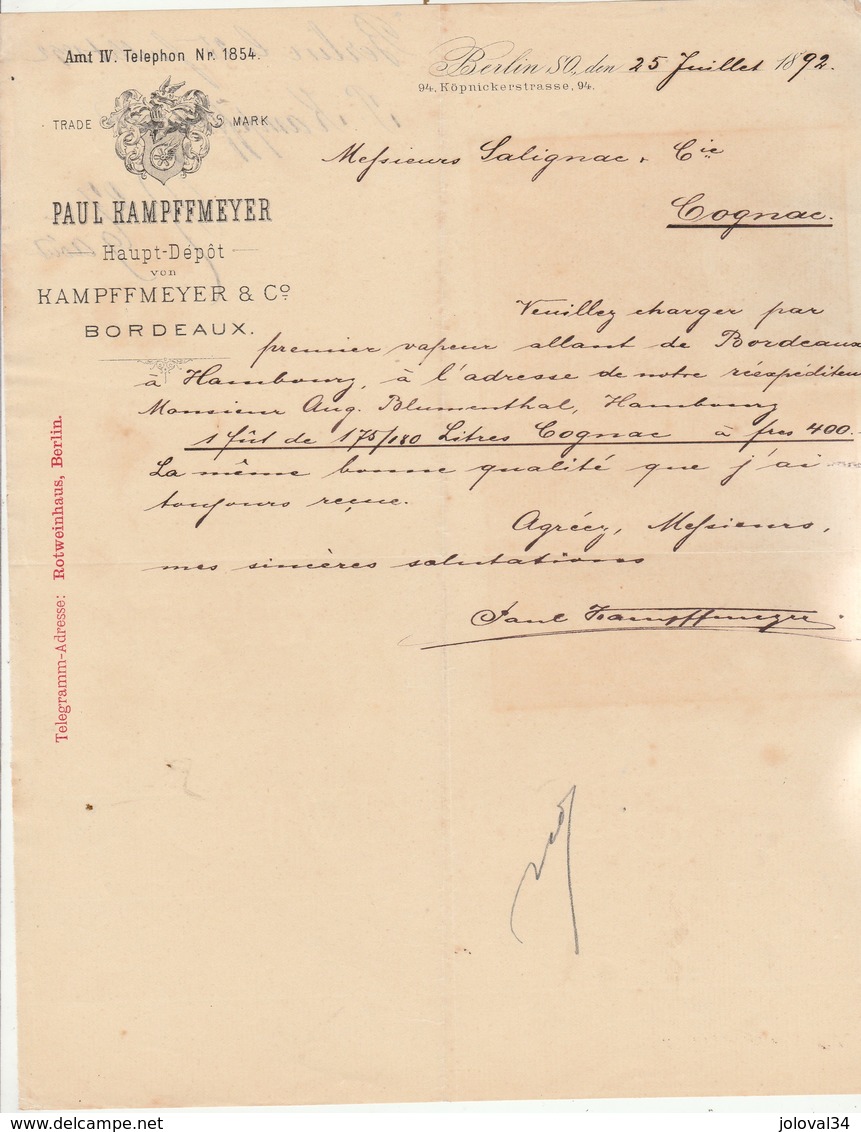 Amt IV. Telephon Nr. 1854.
TRADE MARK
PAUL KAMPFFMEYER
Haupt-Dépôt
von
KAMPFFMEYER & Cº.
BORDEAUX.
Telegramm-Adresse: Rotweinhaus, Berlin.
Berlin SO, den 25 Juillet 1892.
94, Köpnickerstrasse, 94.
Messieurs Salignac & Cie
Cognac.
Veuillez charger par
premier vapeur allant de Bordeaux
à Hambourg, à l'adresse de notre réexpéditeur
Monsieur Aug. Blumenthal, Hambourg
1 fût de 175/180 Litres Cognac à frcs 400.-
La même bonne qualité que j'ai
toujours reçue.
Agréez, Messieurs,
mes sincères salutations
Paul Kampffmeyer
delcampe.net
joloval34